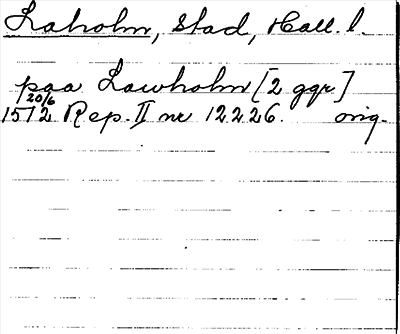 Laholm, stad, Hall. l.
paa Lawholm [2 ggr]
1572 20/6 Rep. II nr 12226. orig.